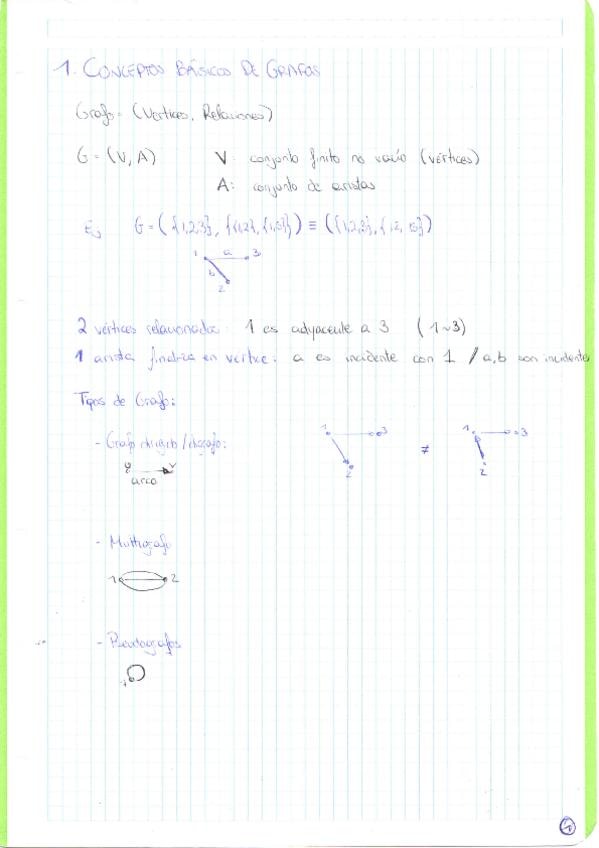 1. CONCEPTOS BÁSICOS DE GRAFOS
Grafo = (Vertices, Relaciones)
G = (V, A) V: conjunto finito no vacío (vértices)
A: conjunto de aristas
Ej G = ({1,2,3}, {{1,2}, {1,3}}) ≡ ({1,2,3}, {12, 13})
1 a 3
b
2
2 vértices relacionados: 1 es adyacente a 3 (1~3)
1 arista finaliza en vértice: a es incidente con 1 / a,b son incidentes
Tipos de Grafo:
- Grafo dirigido / digrafo:
1 3 ≠ 1 3
2 2
arco
- Multigrafo
1 2
- Pseudografos